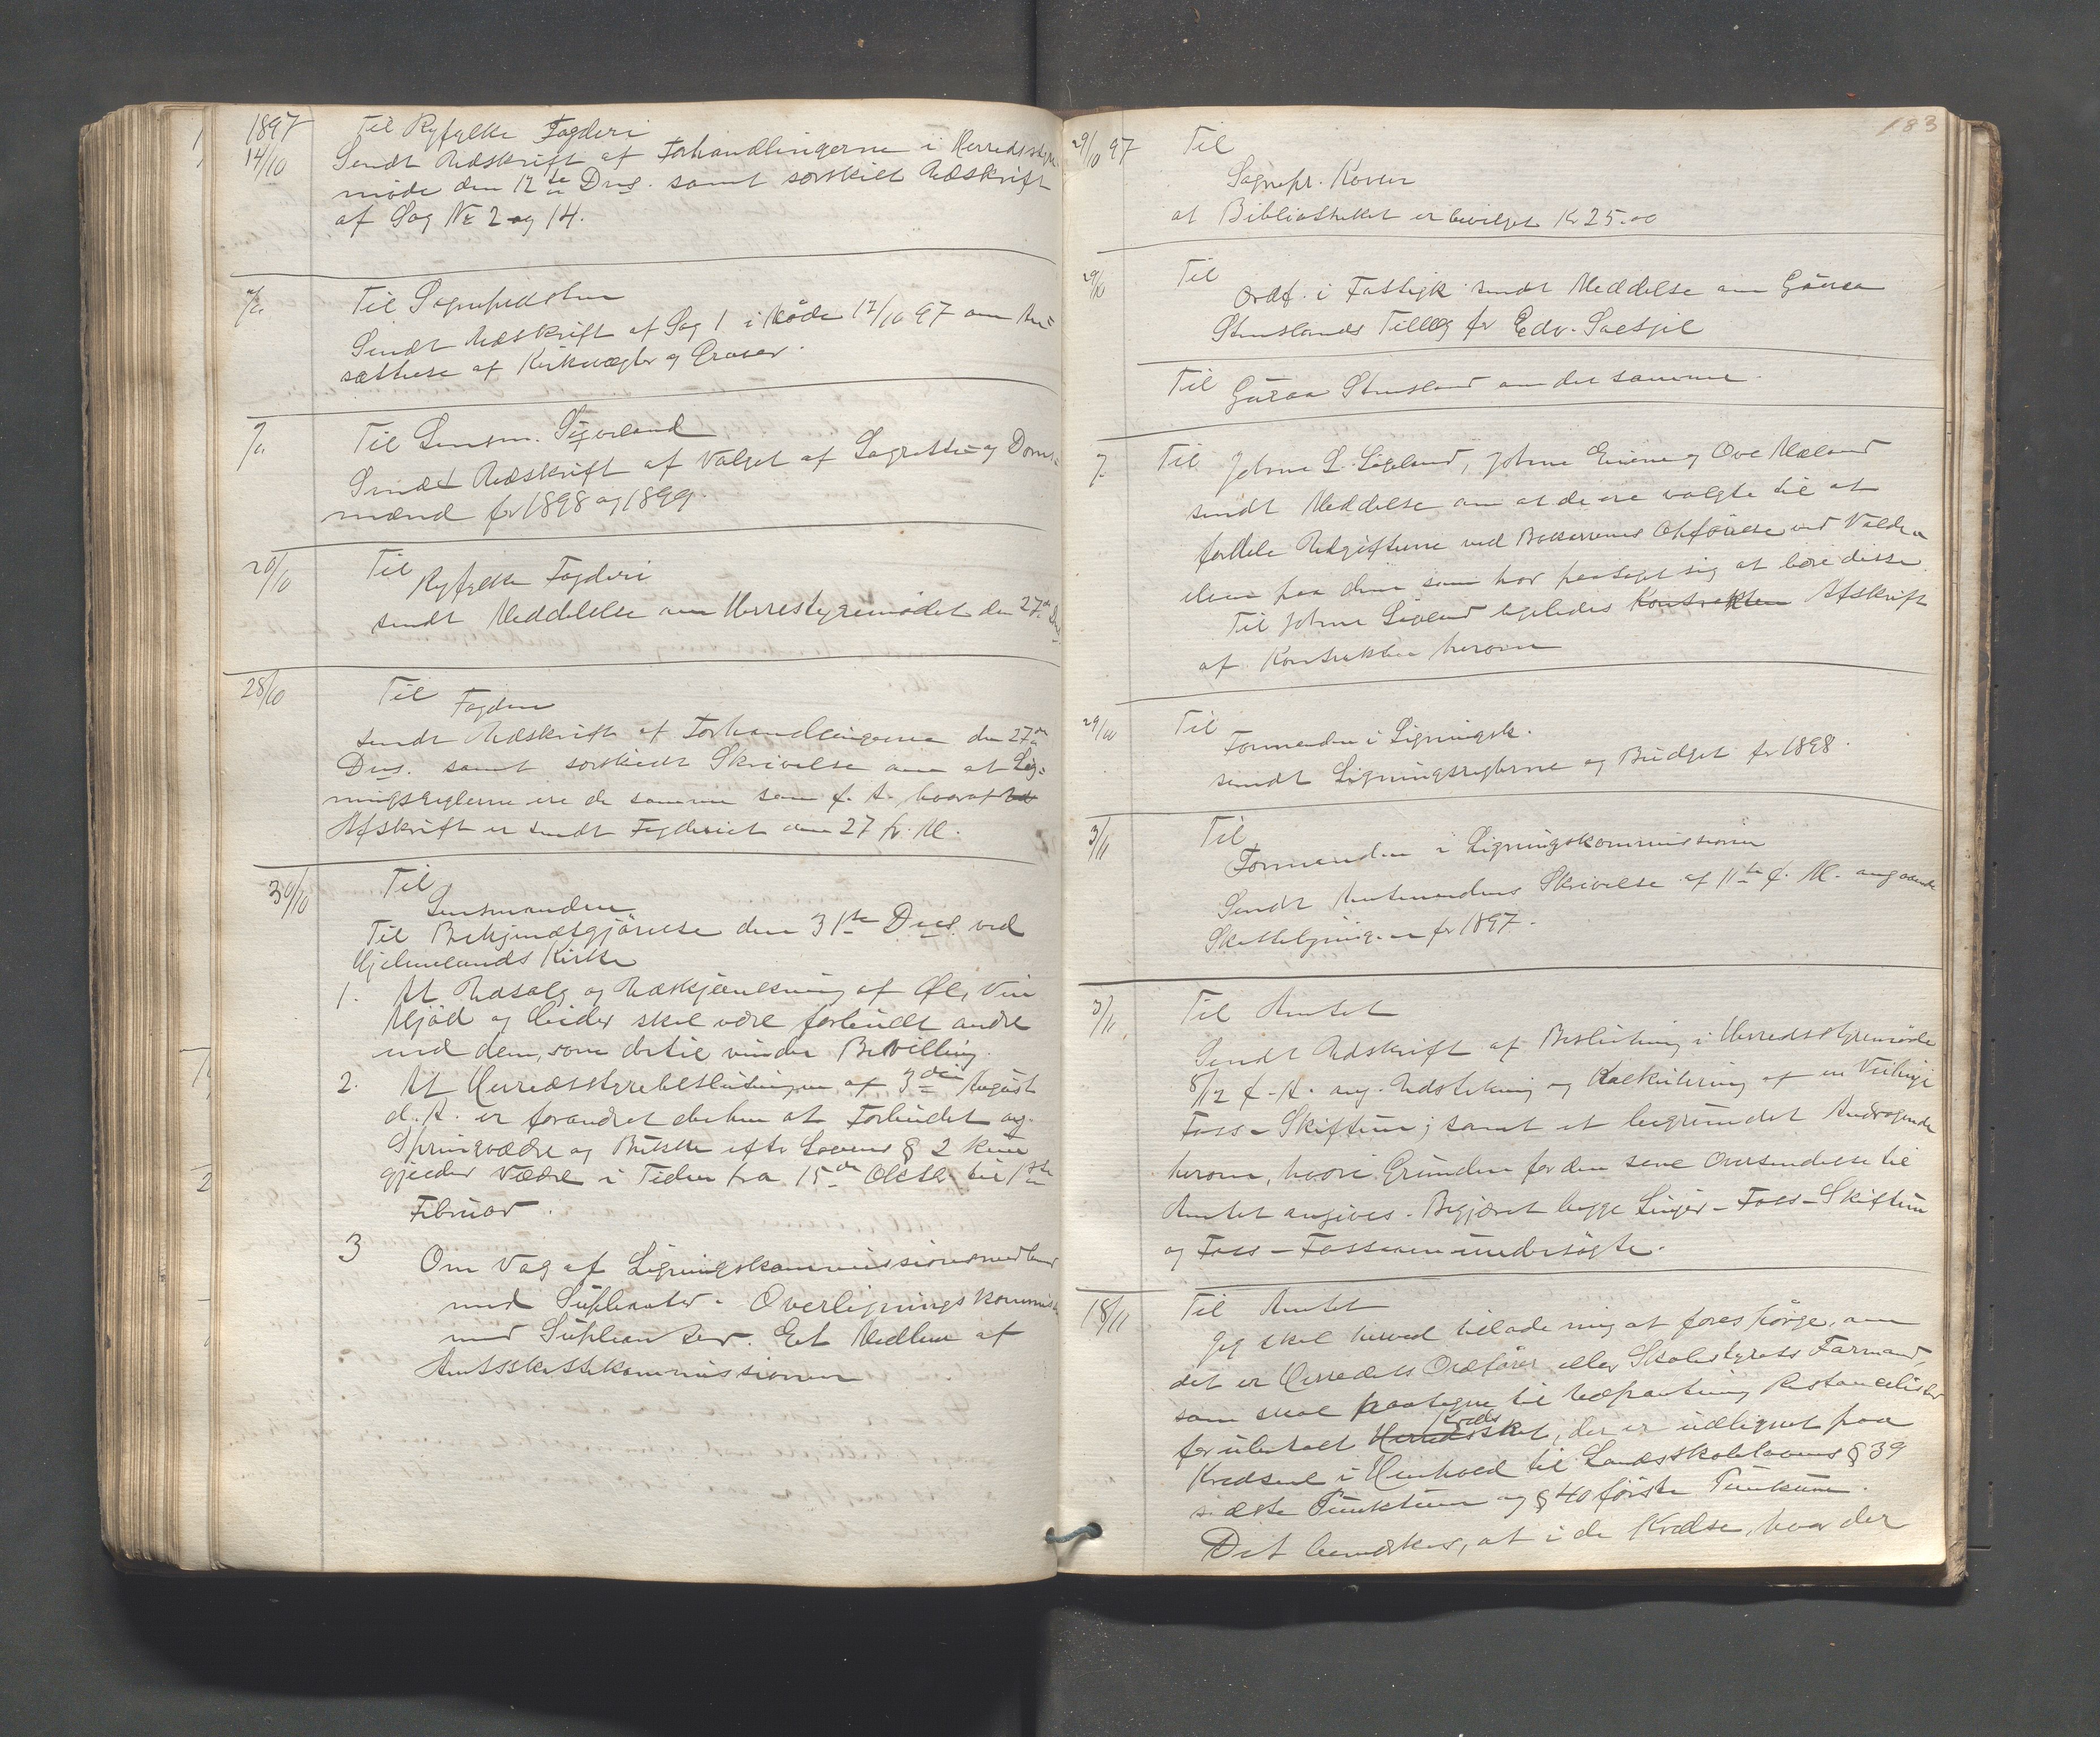 1897
14/10 Til Ryfylke Fogderi
Sendt Udskrift af Forhandlingerne i Herredsstyre-
møde den 12te Dns. samt særskilt Udskrift
af Sag No 2 og 14.
Til Sogneprästen
Sendt Udskrift af Sag 1 i Møde 12/10 97 om An-
sættelse af Kirkevægter og Graver.
Til Lensm. Sigvaland
Sendt Udskrift af Valget af Lagrette- og Doms-
mænd for 1898 og 1899.
20/10 Til
Ryfylke Fogderi
sendt Meddelelse om Herrestyremødet den 27de Dns
28/10 Til
Fogden
sendt Udskrift af Forhandlingerne den 27de
Dns. samt særskildt Skrivelse om at Lig-
ningsreglerne ere de samme som f. A., hvoraf
Afskrift er sendt Fogderiet den 27 f. M.
30/10 Til
Lensmanden
Til Bekjendtgjörelse den 31te Dns. ved
Hjelmelands Kirke
1. At Udsalg og Udskjænkning af Øl, Vin
Mjød og Cider skal være forbudt andre
end dem, som dertil vinder Bevilling.
2. At Herredsstyrebeslutningen af 3die August
d. A. er forandret derhen at Forbudet ang.
Springvædre og Bukke efter Lovens § 2 kun
gjælder Vædre i Tiden fra 15de Oktbr til 1ste
Februar.
3 Om Valg af Ligningskommissionsmedlem
med Suplanter. Overligningskommis
med Suplanter. Et Medlem af
Amtsskattekommissionen
183
29/10 97 Til
Sognepr. Koren
at Bibliotheket er bevilget Kr 25.00
29/10 Til
Ordf. i Fattigk. sendt Meddelse om Gaaraa
Stenslands Tillæg for Edv. Sæsjil
Til Gaaraa Stensland om det samme.
Til Johne L. Sigland, Johne Eiene og Ove Mæland
sendt Meddelse om at de ere valgte til at
fordele Udgifterne ved Bækkernes Opførelse ved Valde-
elven paa dem som har paataget sig at bære disse.
Til Johne Sigland ligeledes Kontrakten Afskrift
af Kontrakten herom
29/10 Til
Formanden i Ligningsk.
sendt Ligningsreglerne og Budget for 1898.
3/11 Til
Formanden i Ligningskommissionen
Sendt Amtmandens Skrivelse af 11te f. M. angaaende
Skatteligningen for 1897.
3/11 Til Amtet
Sendt Udskrift af Beslutning i Herredsstyremöde
8/12 f. A. ang. Udstikning og Kalkulering af en Veilinje
Foss-Skiftun; samt et begrundet Andragende
herom, hvori Grunden for den sene Oversendelse til
Amtet angives. Begjæret begge Linjer - Foss-Skiftun
og Foss-Fossaaen undersögte.
18/11 Til Amtet
Jeg skal herved tillade mig at forespörge, om
det er Herredets Ordfører eller Skolestyrets Formand,
som skal paategne til Udpantning Restancelister
for ubetalt Herredsskat, der er udlignet paa
Kreds
Kredsene i Henhold til Landsskolelovens § 39
sidste Punktum og § 40 förste Punktum.
Det bemærkes, at i de Kredse, hvor der